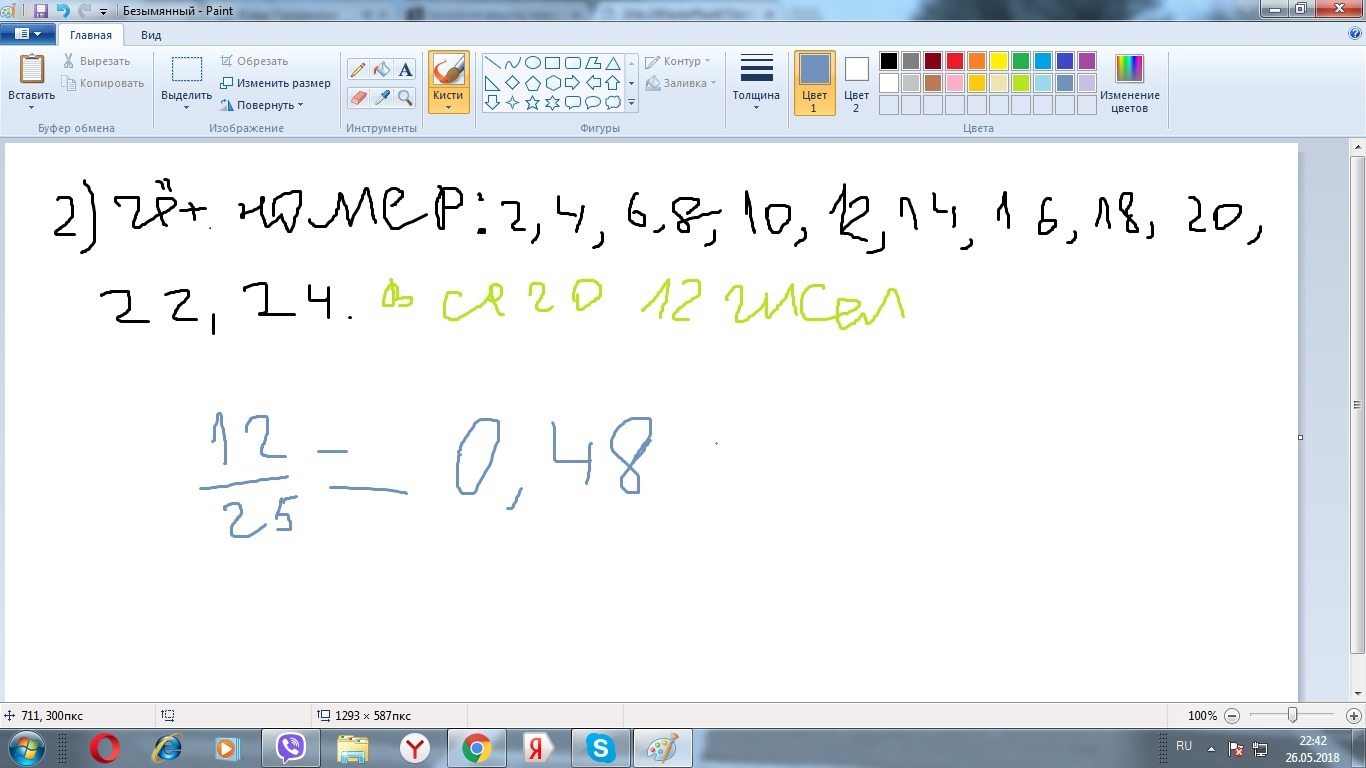 Безымянный - Paint
Главная Вид
Вставить
Вырезать
Копировать
Буфер обмена
Выделить
Обрезать
Изменить размер
Повернуть
Изображение
A
Инструменты
Кисти
Контур
Заливка
Фигуры
Толщина
Цвет 1
Цвет 2
Изменение цветов
Цвета
2) чёт. номер: 2, 4, 6, 8, 10, 12, 14, 16, 18, 20,
22, 24. всего 12 чисел
12
25
= 0,48
711, 300пкс
1293 × 587пкс
100%
RU
22:42
26.05.2018